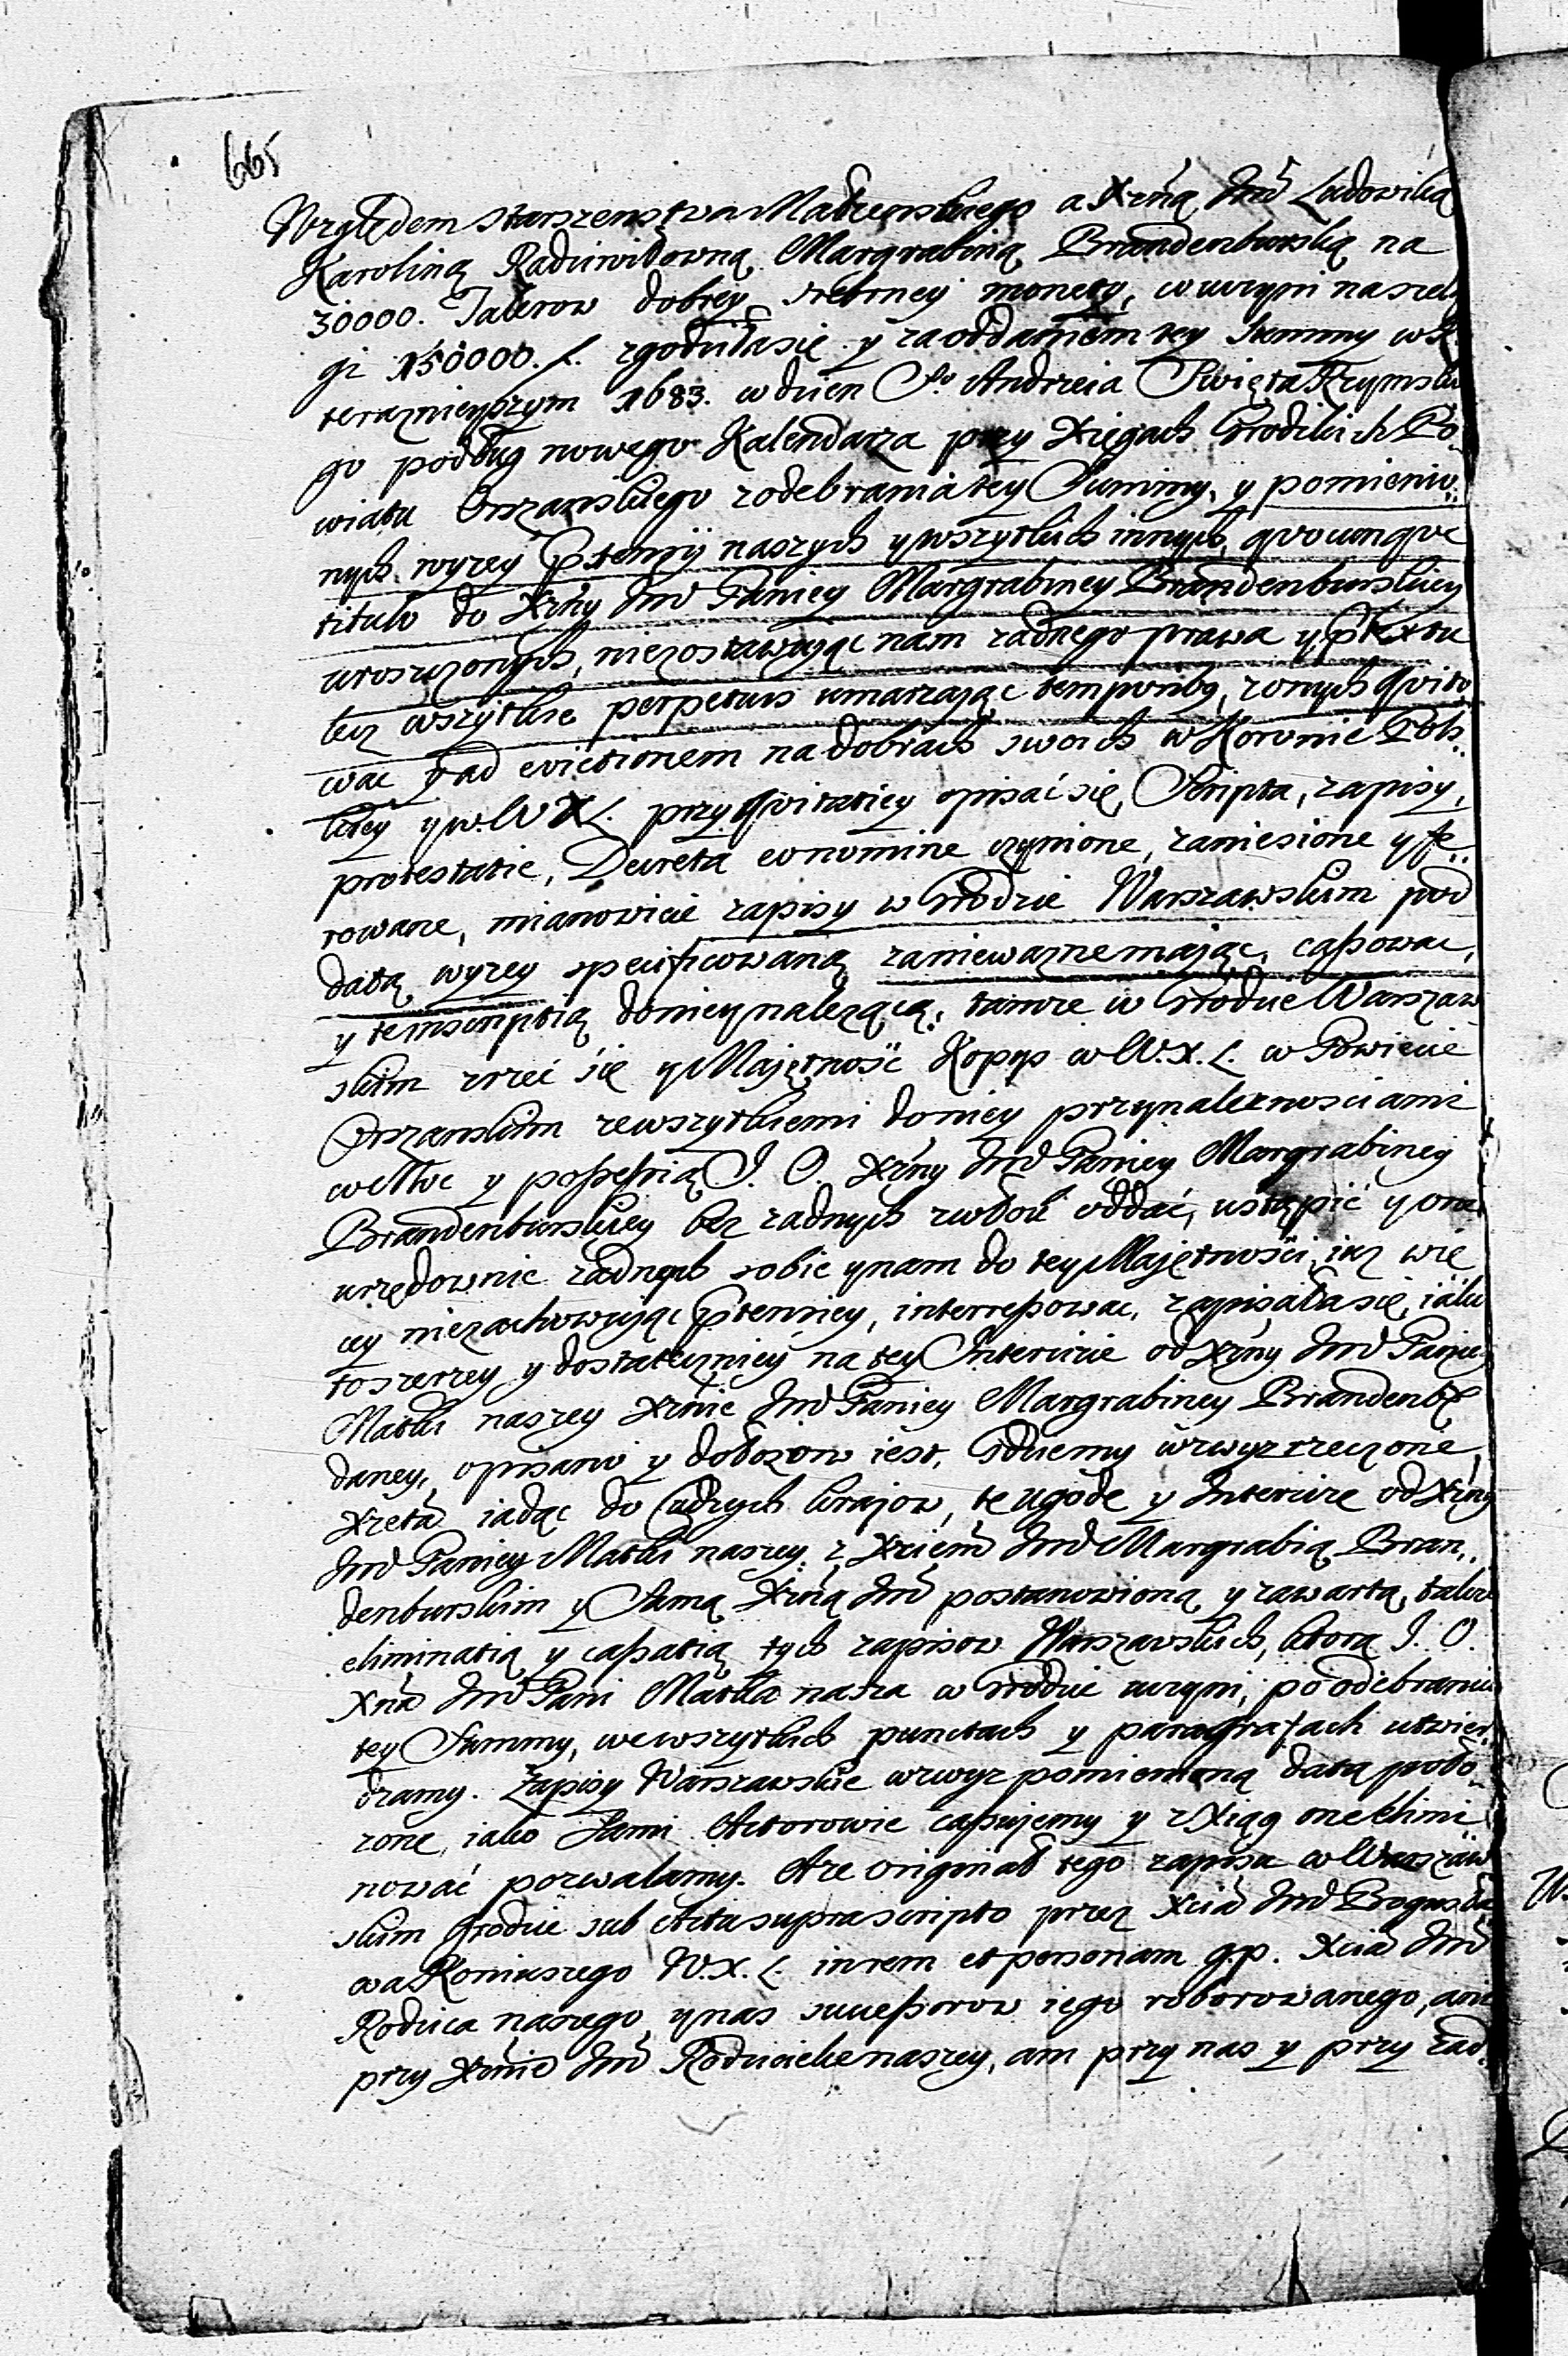 665
Względem starszenstwa Małżenskiego a Xżną Jmć Ludowiką
Karoliną Radziwiłowną Margrabiną Brandenburską na
30000. Talerow dobrey srebrney monety, co uczyni na szelą
gi 150000. f. zgodziłasię y za oddaniem tey Summy w R.
teraznieyszym 1683. w dzien So. Andrzeia Swięta Rzymskie
go podług nowego Kalendarza przy Xięgach Grodzkich Po
wiatu Orszanskiego z odebrania tey Summy, y pomienio„
nych wyzey Ptensij naszych y wszytkich innych, quocunque
titulo do Xżny Jmć Paniey Margrabiney Brandenburskiey
uroszczonych, niezostawując nam zadnego prawa y Ptextu
lecz wszytkie perpetuis umarzając temporibg, z onych quito„
wac y ad evictionem na dobrach swoich w Koronie Pols„
kiey y w W X L. przy Quitatiey opisać się, Skripta, zapisy,
protestatie, Decreta eo nomine czynione, zaniesione y fe„
rowane, mianowicie zapisy w Grodzie Warszawskim pod
datą wyzey specificowaną za niewazne mając, cassowac,
y te inscriptią do niey nalezącą, tamze w Grodzie Warszaw
skim zrzec się y Majętność Kopyś w W. X. L. w Powiecie
Orszanskim ze wszytkiemi do niey przynaleznosciami
w Moc y possessią J. O. Xżny Jmć Paniey Margrabiney
Brandenburskiey bez zadnych zwłok oddać, ustąpić y one
urzędownie zadnych sobie y nam do tey Majętności, iuz wię
cey niezachowując Ptensiey, interressowac, zapisała się, iako
to szerzey y dostateczniey na tey Intercizie od Xżny Jmć Paniey
Matki naszey Xżnie Jmć Paniey Margrabiney Brandenb
daney, opisano y dołożono iest, Gdzie my wzwyz rzeczone,
Xzęta iadąc do Cudzych krajow, te ugode y Intercize od Xżny
Jmć Paniey Matki naszey z Xciem Jmć Margrabią Bran„
denburskim y Samą Xżną Jmć postanowioną y zawartą, także
eliminatią y cassatią tych zapisow Warszawskich, ktorą J. O.
Xżna Jmć Pani Matka nasza w Grodzie uczyni, po odebraniu
tey Summy, we wszytkich punctach y paragrafach utwier„
dzamy. Zapisy Warszawskie wzwyz pomienioną datą poło„
zone, iako Sami Actorowie cassujemy y z Xiąg one elimi
nować pozwalamy. A ze originał tego zapisu w Warszaw
skim Grodzie sub Acta suprascripto przez Xcia Jmć Bogusła
wa Koniuszego W. X. L. in rem et personam g. p. Xcia Jmć
Rodzica naszego, y nas successorow iego roborowanego, ani
przy Xżnie Jmć Rodzicielce naszey, ani przy nas y przy zad„